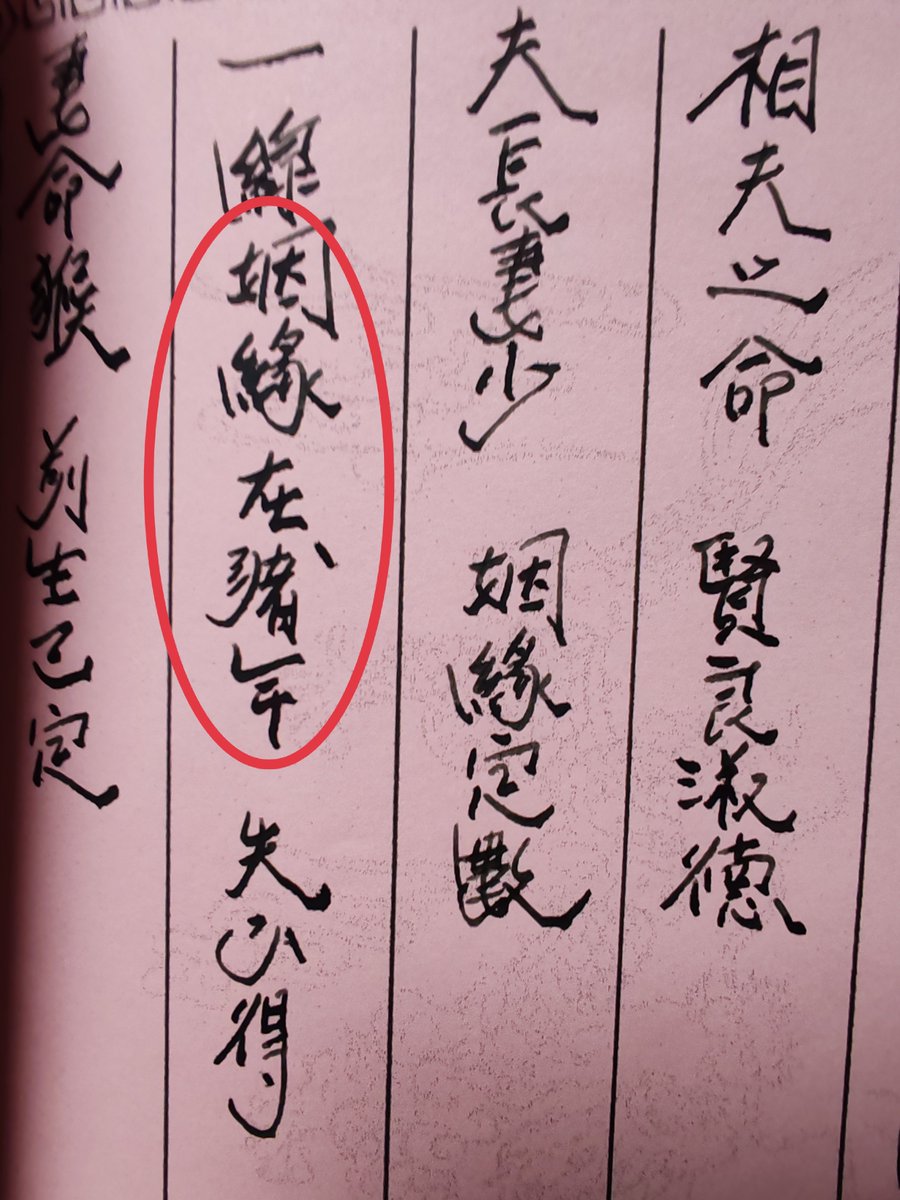 相夫之命 賢良淑德
夫長妻少 姻緣定數
一 姻緣在豬年 得
妻命猴 前生已定